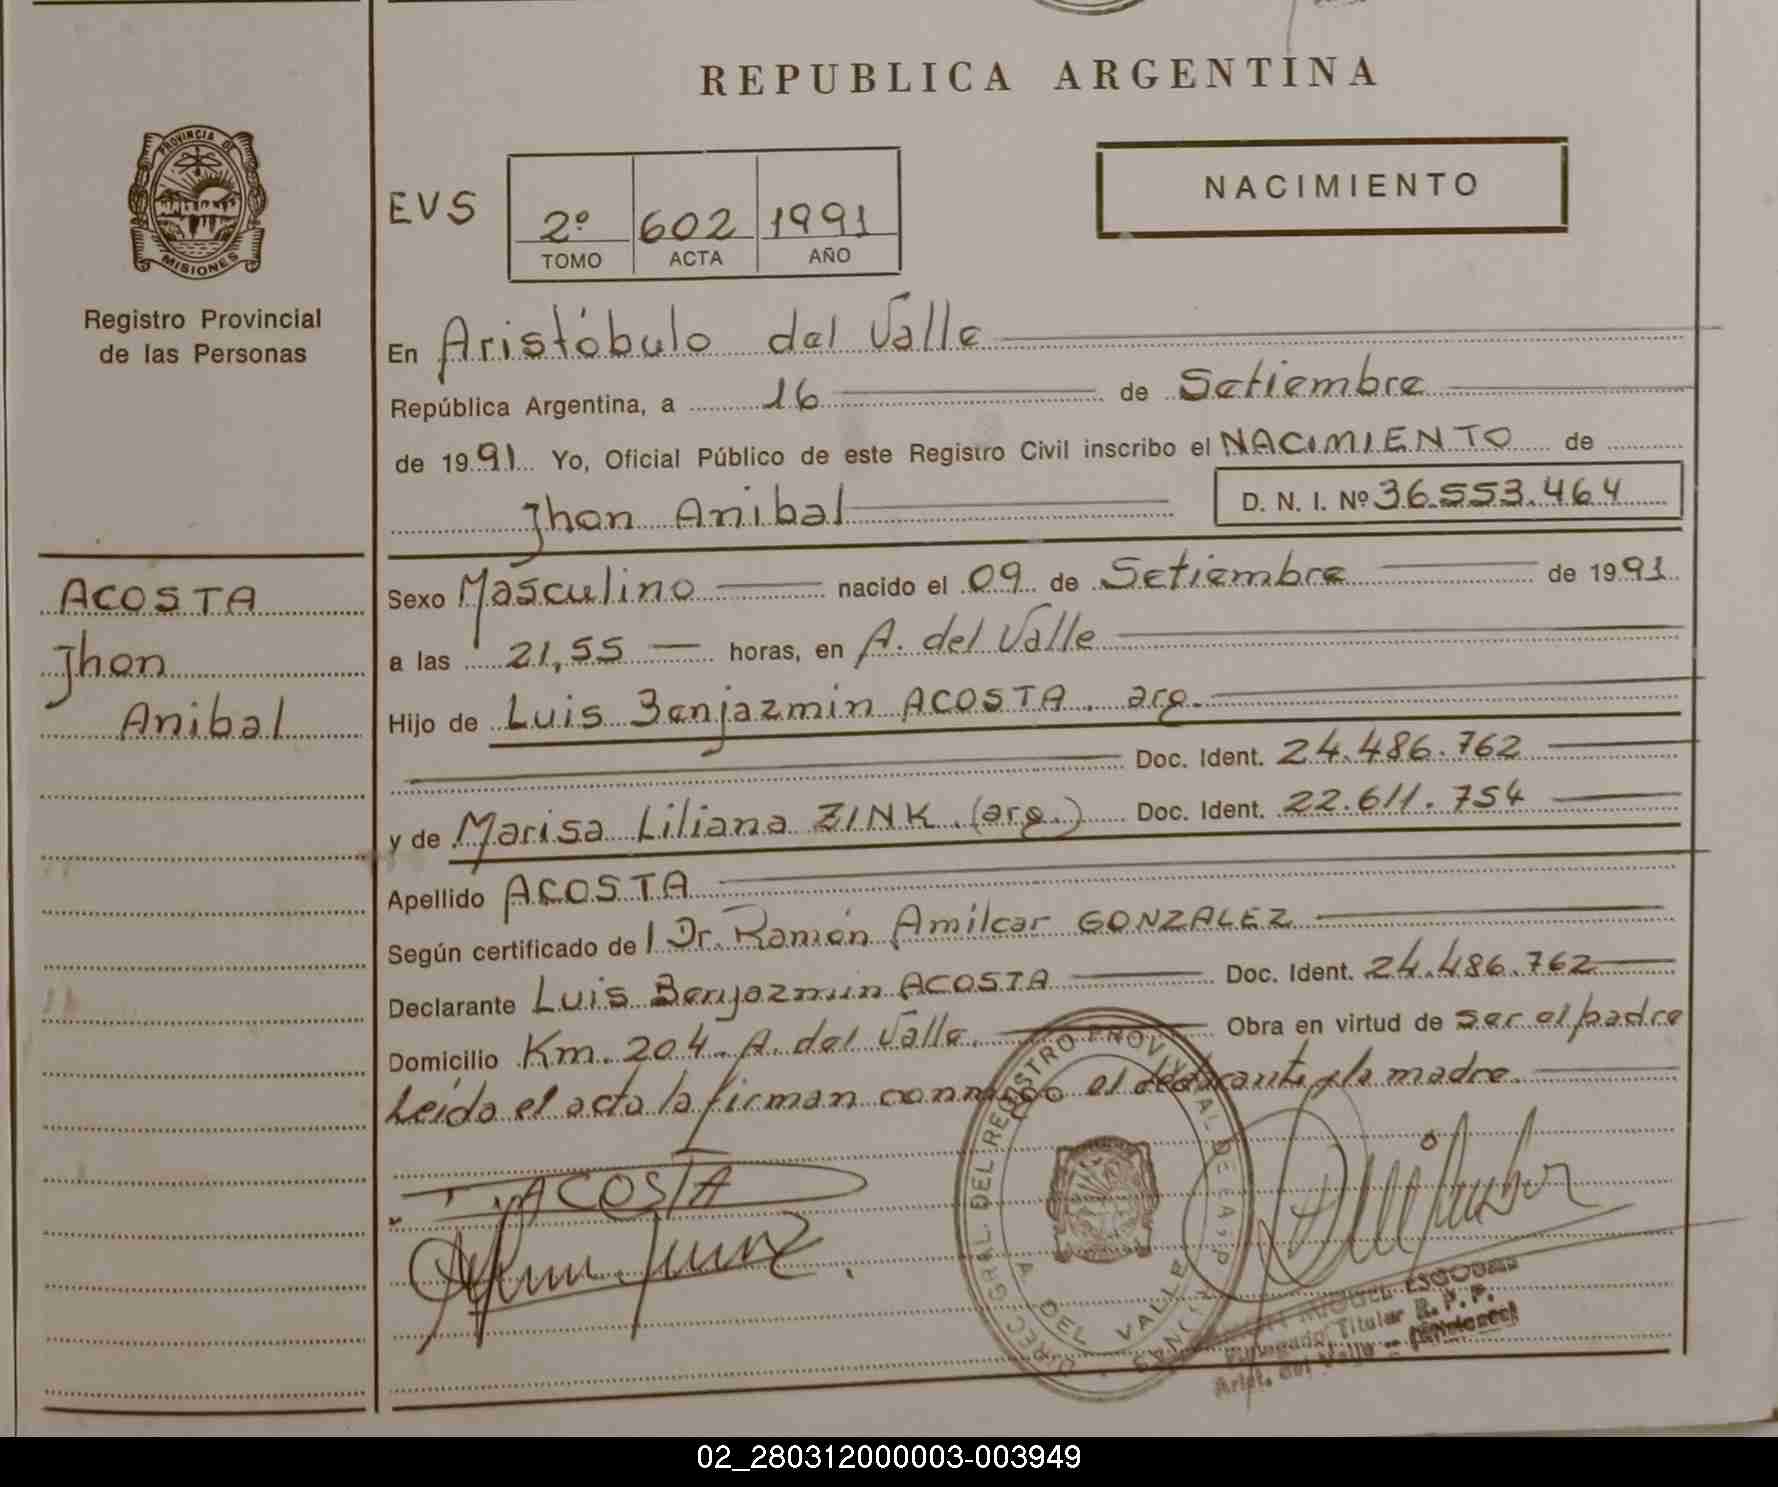 REPUBLICA ARGENTINA
PROVINCIA DE
MISIONES
Registro Provincial
de las Personas
EVS
2º 602 1991
TOMO ACTA AÑO
NACIMIENTO
En Aristóbulo del Valle
República Argentina, a 16 de Setiembre
de 1991 Yo, Oficial Público de este Registro Civil inscribo el NACIMIENTO de
Jhon Anibal D. N. I. Nº 36.553.464
ACOSTA
Jhon
Anibal
Sexo Masculino nacido el 09 de Setiembre de 1991
a las 21,55 horas, en A. del Valle
Hijo de Luis Benjazmin ACOSTA. arg.
Doc. Ident. 24.486.762
y de Marisa Liliana ZINK. (arg.) Doc. Ident. 22.611.754
Apellido ACOSTA
Según certificado de l Dr. Ramón Amilcar GONZALEZ
Declarante Luis Benjazmin ACOSTA Doc. Ident. 24.486.762
Domicilio Km. 204. A. del Valle. Obra en virtud de ser el padre
Leída el acta la firman conmigo el declarante y la madre.
ACOSTA
DIREC. GRAL. DEL REGISTRO PROVINCIAL DE LAS P.
A. DEL VALLE
MISIONES
ESCOBAR
Titular R. P. P.
Arist. del Valle - (Misiones)
02_280312000003-003949